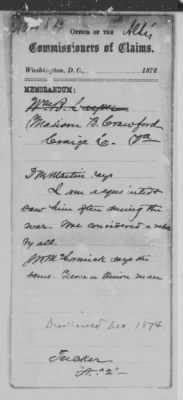 OFFICE OF THE
Commissioners of Claims.
Washington, D. C., 1872
MEMORANDUM:
Wm B. Cooper
Madison B. Crawford
Craige Co. Va
J M Martin says
I am acquainted
saw him often during the
war. Was considered a rebel
by all.
Jno McCormick says the
same. Geo a Union man
Disallowed Dec. 1874
Tucker